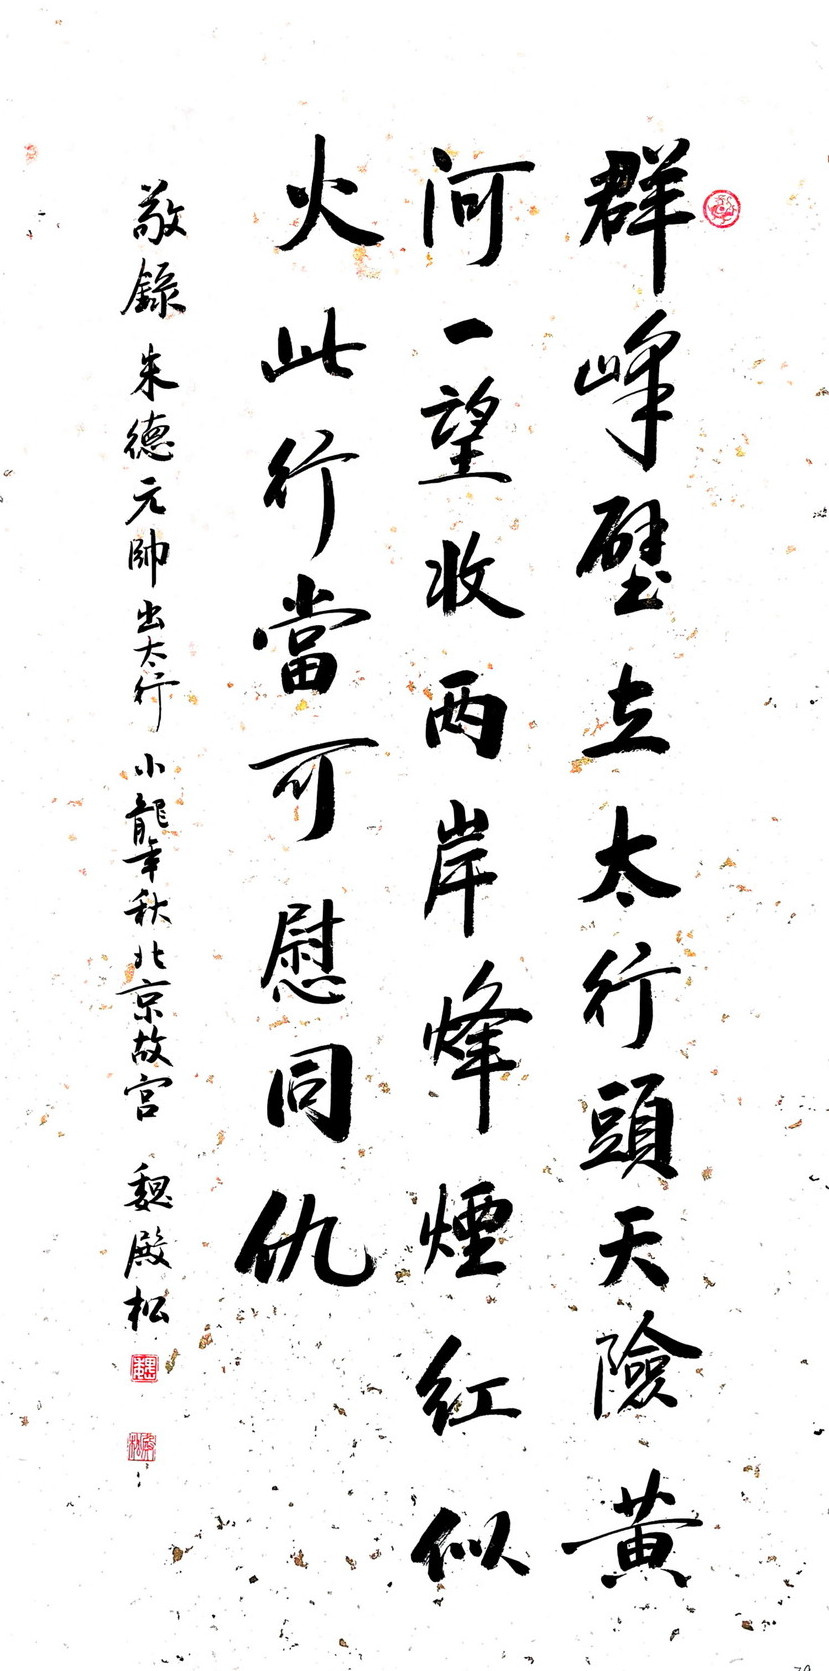 群峰壁立太行頭天險黄
河一望收两岸烽煙紅似
火此行當可慰同仇
敬録朱德元帥出太行小龍年秋北京故宫魏殿松